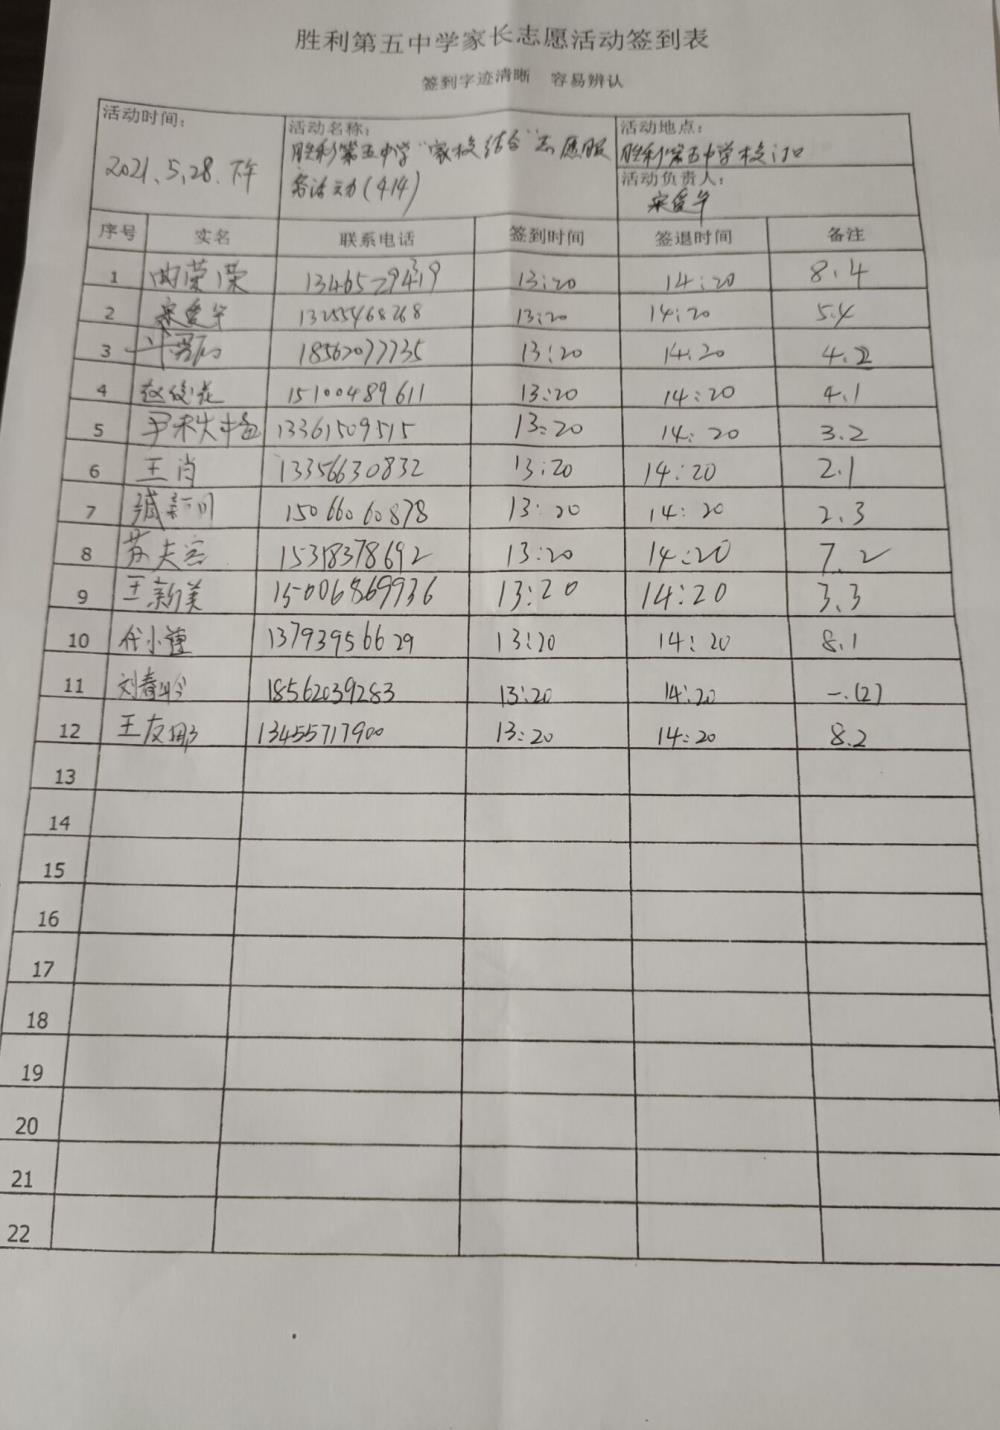 胜利第五中学家长志愿活动签到表
签到字迹清晰 容易辨认
活动时间: 2021.5.28.下午
活动名称: 胜利第五中学“家校结合”志愿服
务活动(414)
活动地点: 胜利第五中学校门口
活动负责人: 宋爱华
序号 实名 联系电话 签到时间 签退时间 备注
1 曲荣荣 13:20 14:20 8.4
2 宋爱华 13255468268 13:20 14:20 5.4
3 18562077735 13:20 14:20 4.2
4 赵俊花 15100489611 13:20 14:20 4.1
5 13361509515 13:20 14:20 3.2
6 王肖 13356630832 13:20 14:20 2.1
7 15066060878 13:20 14:20 2.3
8 15318378692 13:20 14:20 7.2
9 王新美 15006869936 13:20 14:20 3.3
10 13793956629 13:20 14:20 8.1
11 刘春 18562039283 13:20 14:20 一.(2)
12 王友娜 13455717900 13:20 14:20 8.2
13
14
15
16
17
18
19
20
21
22